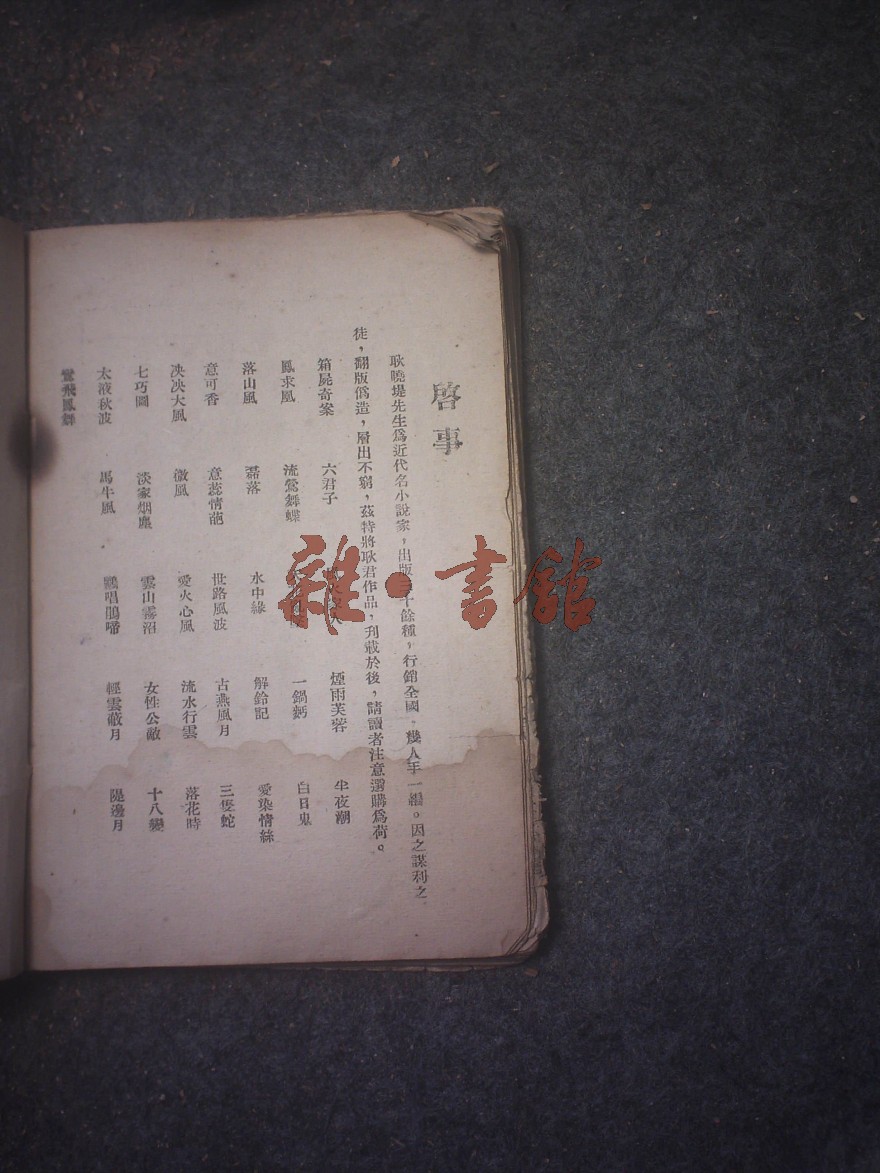 啓事
耿曉堤先生爲近代名小說家，出版 十餘種，行銷全國，幾人手一編。因之謀利之
徒，翻版僞造，層出不窮，茲特將耿君作品，刋載於後，請讀者注意選購爲荷。
箱屍奇案 六君子 煙雨芙蓉 半夜潮
鳳求凰 流鶯舞蝶 一鍋麪 白日鬼
落山風 磊落 水中緣 解鈴記 愛染情絲
意可香 意蕊情葩 世路風波 古燕風月 三隻蛇
泱泱大風 微風 愛火心風 流水行雲 落花時
七巧圖 淡家烟塵 雲山霧沼 女性公敵 十八變
太液秋波 馬牛風 鸚唱鵑啼 輕雲蔽月 隄邊月
鸞飛鳳舞
雜·書館